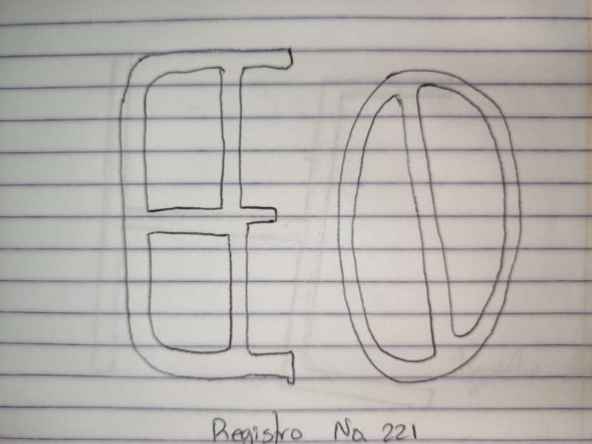 Registro No 221